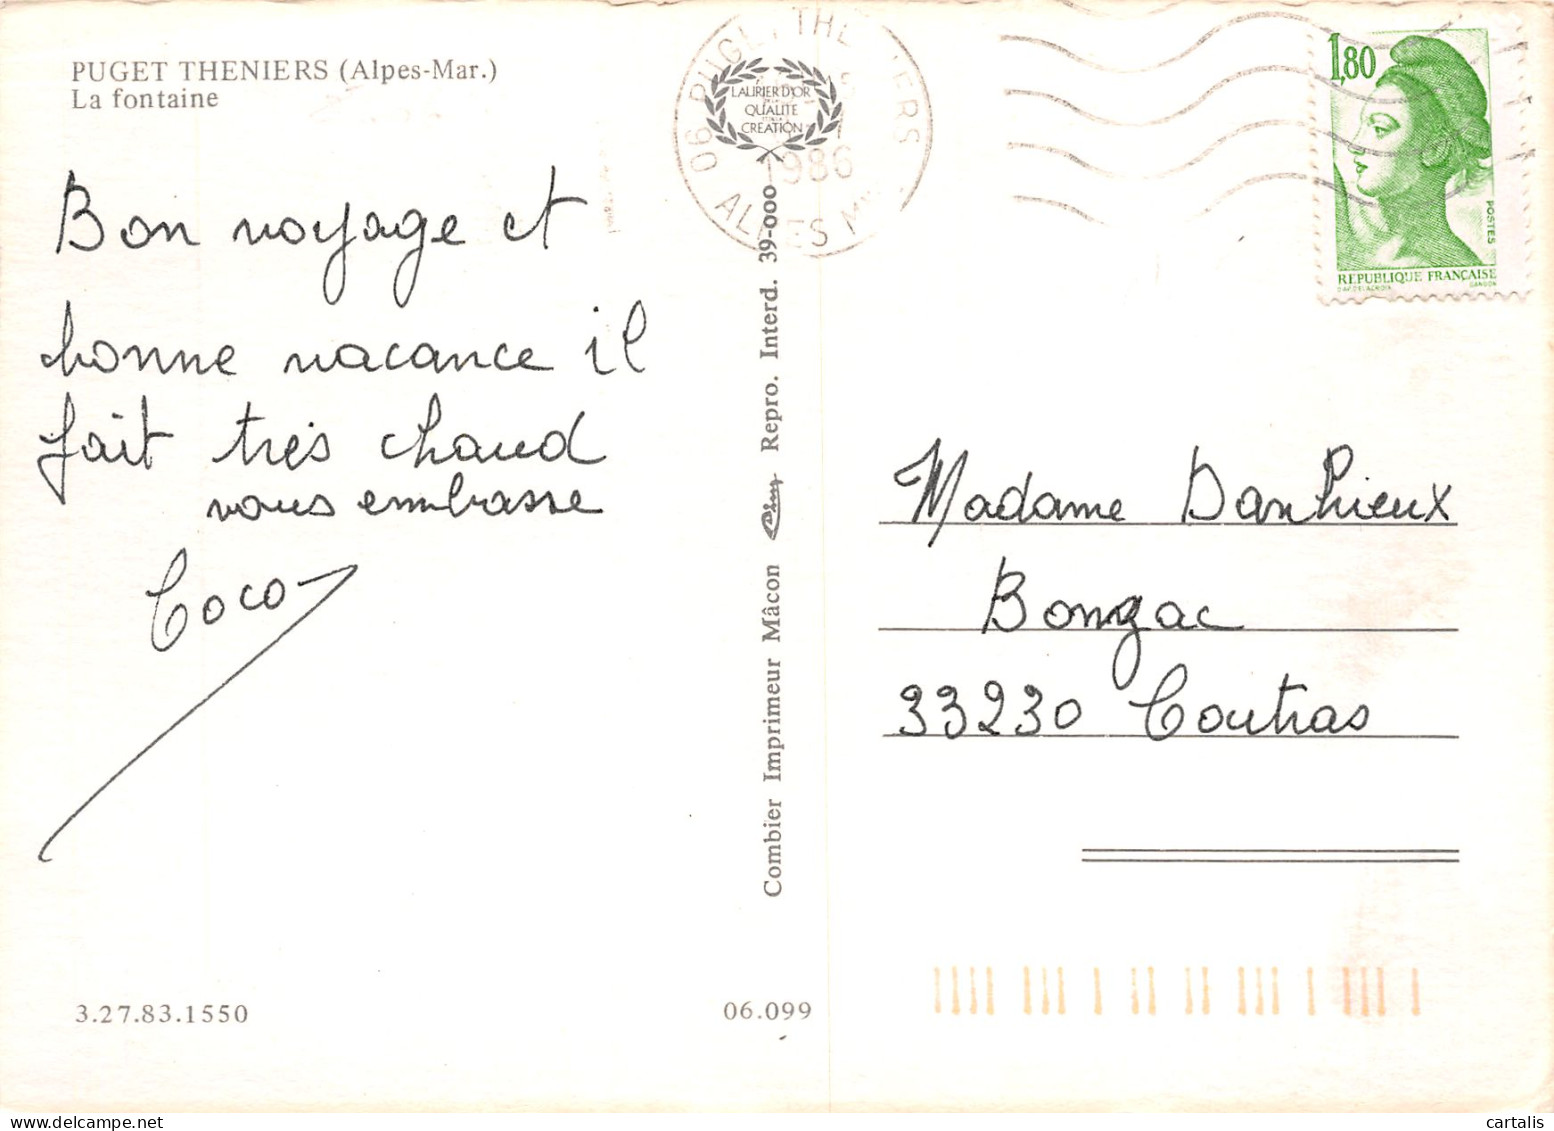 PUGET THENIERS (Alpes-Mar.)
La fontaine
Bon voyage et
bonne vacance il
fait très chaud
vous embrasse
Coco
3.27.83.1550
06.099
Combier Imprimeur Mâcon Repro. Interd. 39-000
LAURIER D'OR
QUALITE
CREATION
06 PUGET THENIERS
1986
ALPES Mmes
1,80
POSTES
REPUBLIQUE FRANÇAISE
D'AP. DELACROIX GANDON
Madame Danhieux
Bonzac
33230 Coutras
cartalis